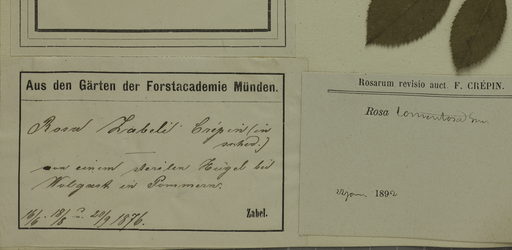 Aus den Gärten der Forstacademie Münden.
Rosa Zabelii Crépin (in
sched.)
von einem sterilen Hügel bei
Wolgast in Pommern.
16/6. 18/8 u. 20/9 1876.
Zabel.
Rosarum revisio auct. F. CRÉPIN.
Rosa tomentosa Sm
1892